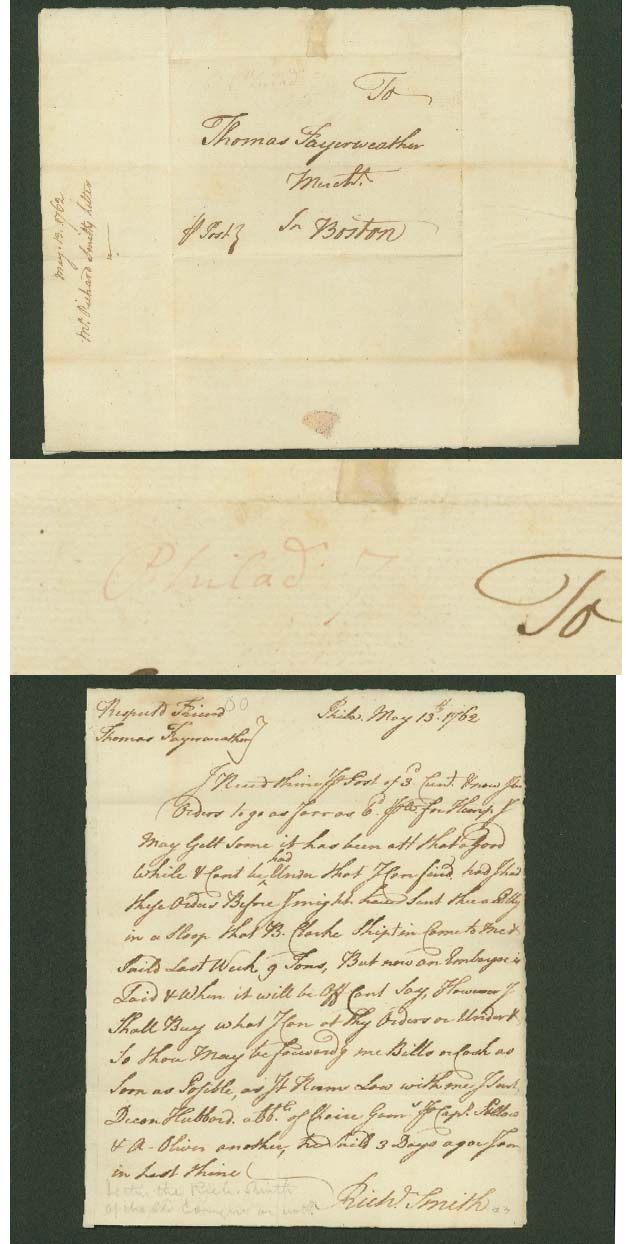 To
Thomas Fayerweather
Mercht.
In Boston
⅌ Post
May 13. 1762
Mr. Richard Smiths letter
Philad. 7
To
Respectd Friend
Thomas Fayerweather
Phila. May 13th. 1762
I Recd thine ⅌ Post of 3d. Curt. & now
Orders to go as farr as 6d. for Hemp I
May Gett Some it has been att that a Good
While & Cant be had Under that I Can find, had I had
these Orders Before I might have Sent thee a
in a Sloop that B. Clarke Shipt in Come to me &
Saild Last Week 9 Tons, But now an Embargoe is
Laid & When it will be Off Cant Say, However I
Shall Buy what I Can at thy Orders or Under &
So thou May be forwardg me Bills or Cash as
Soon as Posible, as It Runs Low with me I Sent
Decon Hubbard a bb. of ⅌ Capt.
& A. Oliver another, he Saild 3 Days agoe I am
in hast thine
Richd. Smith
the Rich. Smith
of the Old Congress